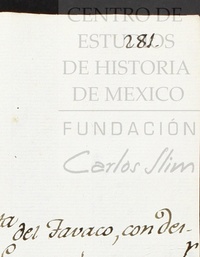 CENTRO DE
ESTUDIOS
281.
DE HISTORIA
DE MEXICO
FUNDACIÓN
Carlos Slim
del Tavaco, con des-